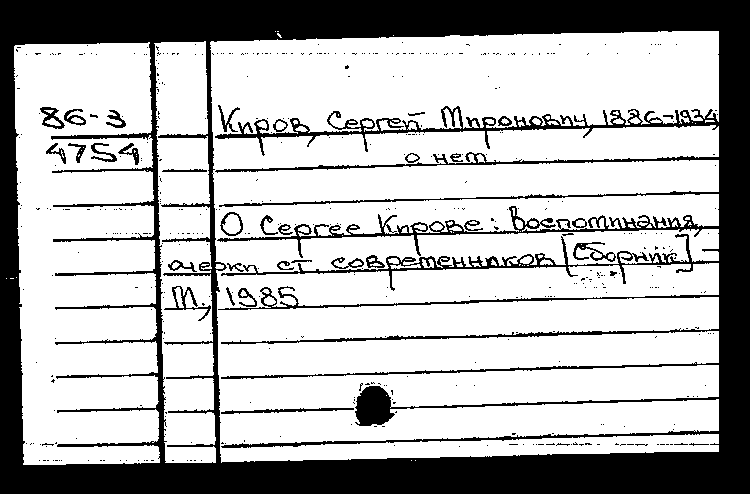 86-3
4754
Киров, Сергей Миронович, 1886-1934,
о нем.
О Сергее Кирове: Воспоминания,
очерки ст. современников [Сборник] –
М., 1985